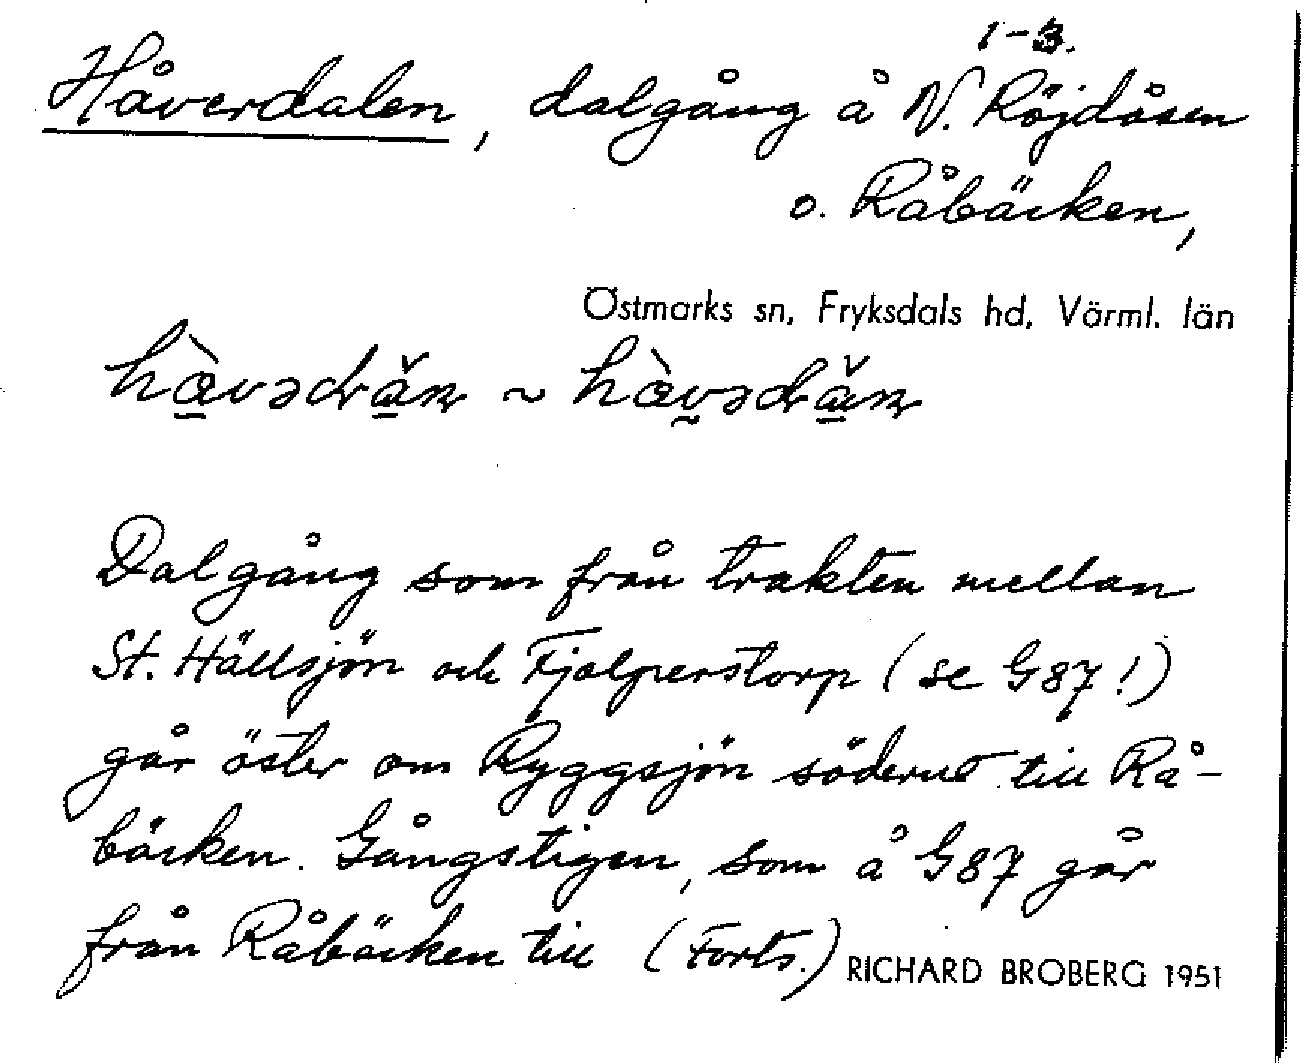 1-3.
Håverdalen, dalgång å N. Röjdåsen
o. Råbäcken,
Östmarks sn, Fryksdals hd, Värml. län
Dalgång som från trakten mellan
St. Hällsjön och Fjolperstorp (se G87!)
går öster om Ryggsjön söderut till Rå-
bäcken. Gångstigen, som å G87 går
från Råbäcken till (Forts.)
RICHARD BROBERG 1951